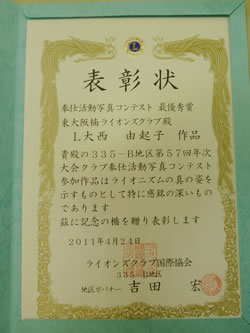 表彰状
奉仕活動写真コンテスト 最優秀賞
東大阪楠ライオンズクラブ殿
L大西 由起子 作品
貴殿の335-B地区第57回年次
大会クラブ奉仕活動写真コンテスト
参加作品はライオニズムの真の姿を
示すものとして特に感銘の深いもので
であります
茲に記念の楯を贈り表彰します
2011年4月24日
ライオンズクラブ国際協会
335-B地区
地区ガバナー 吉田 宏